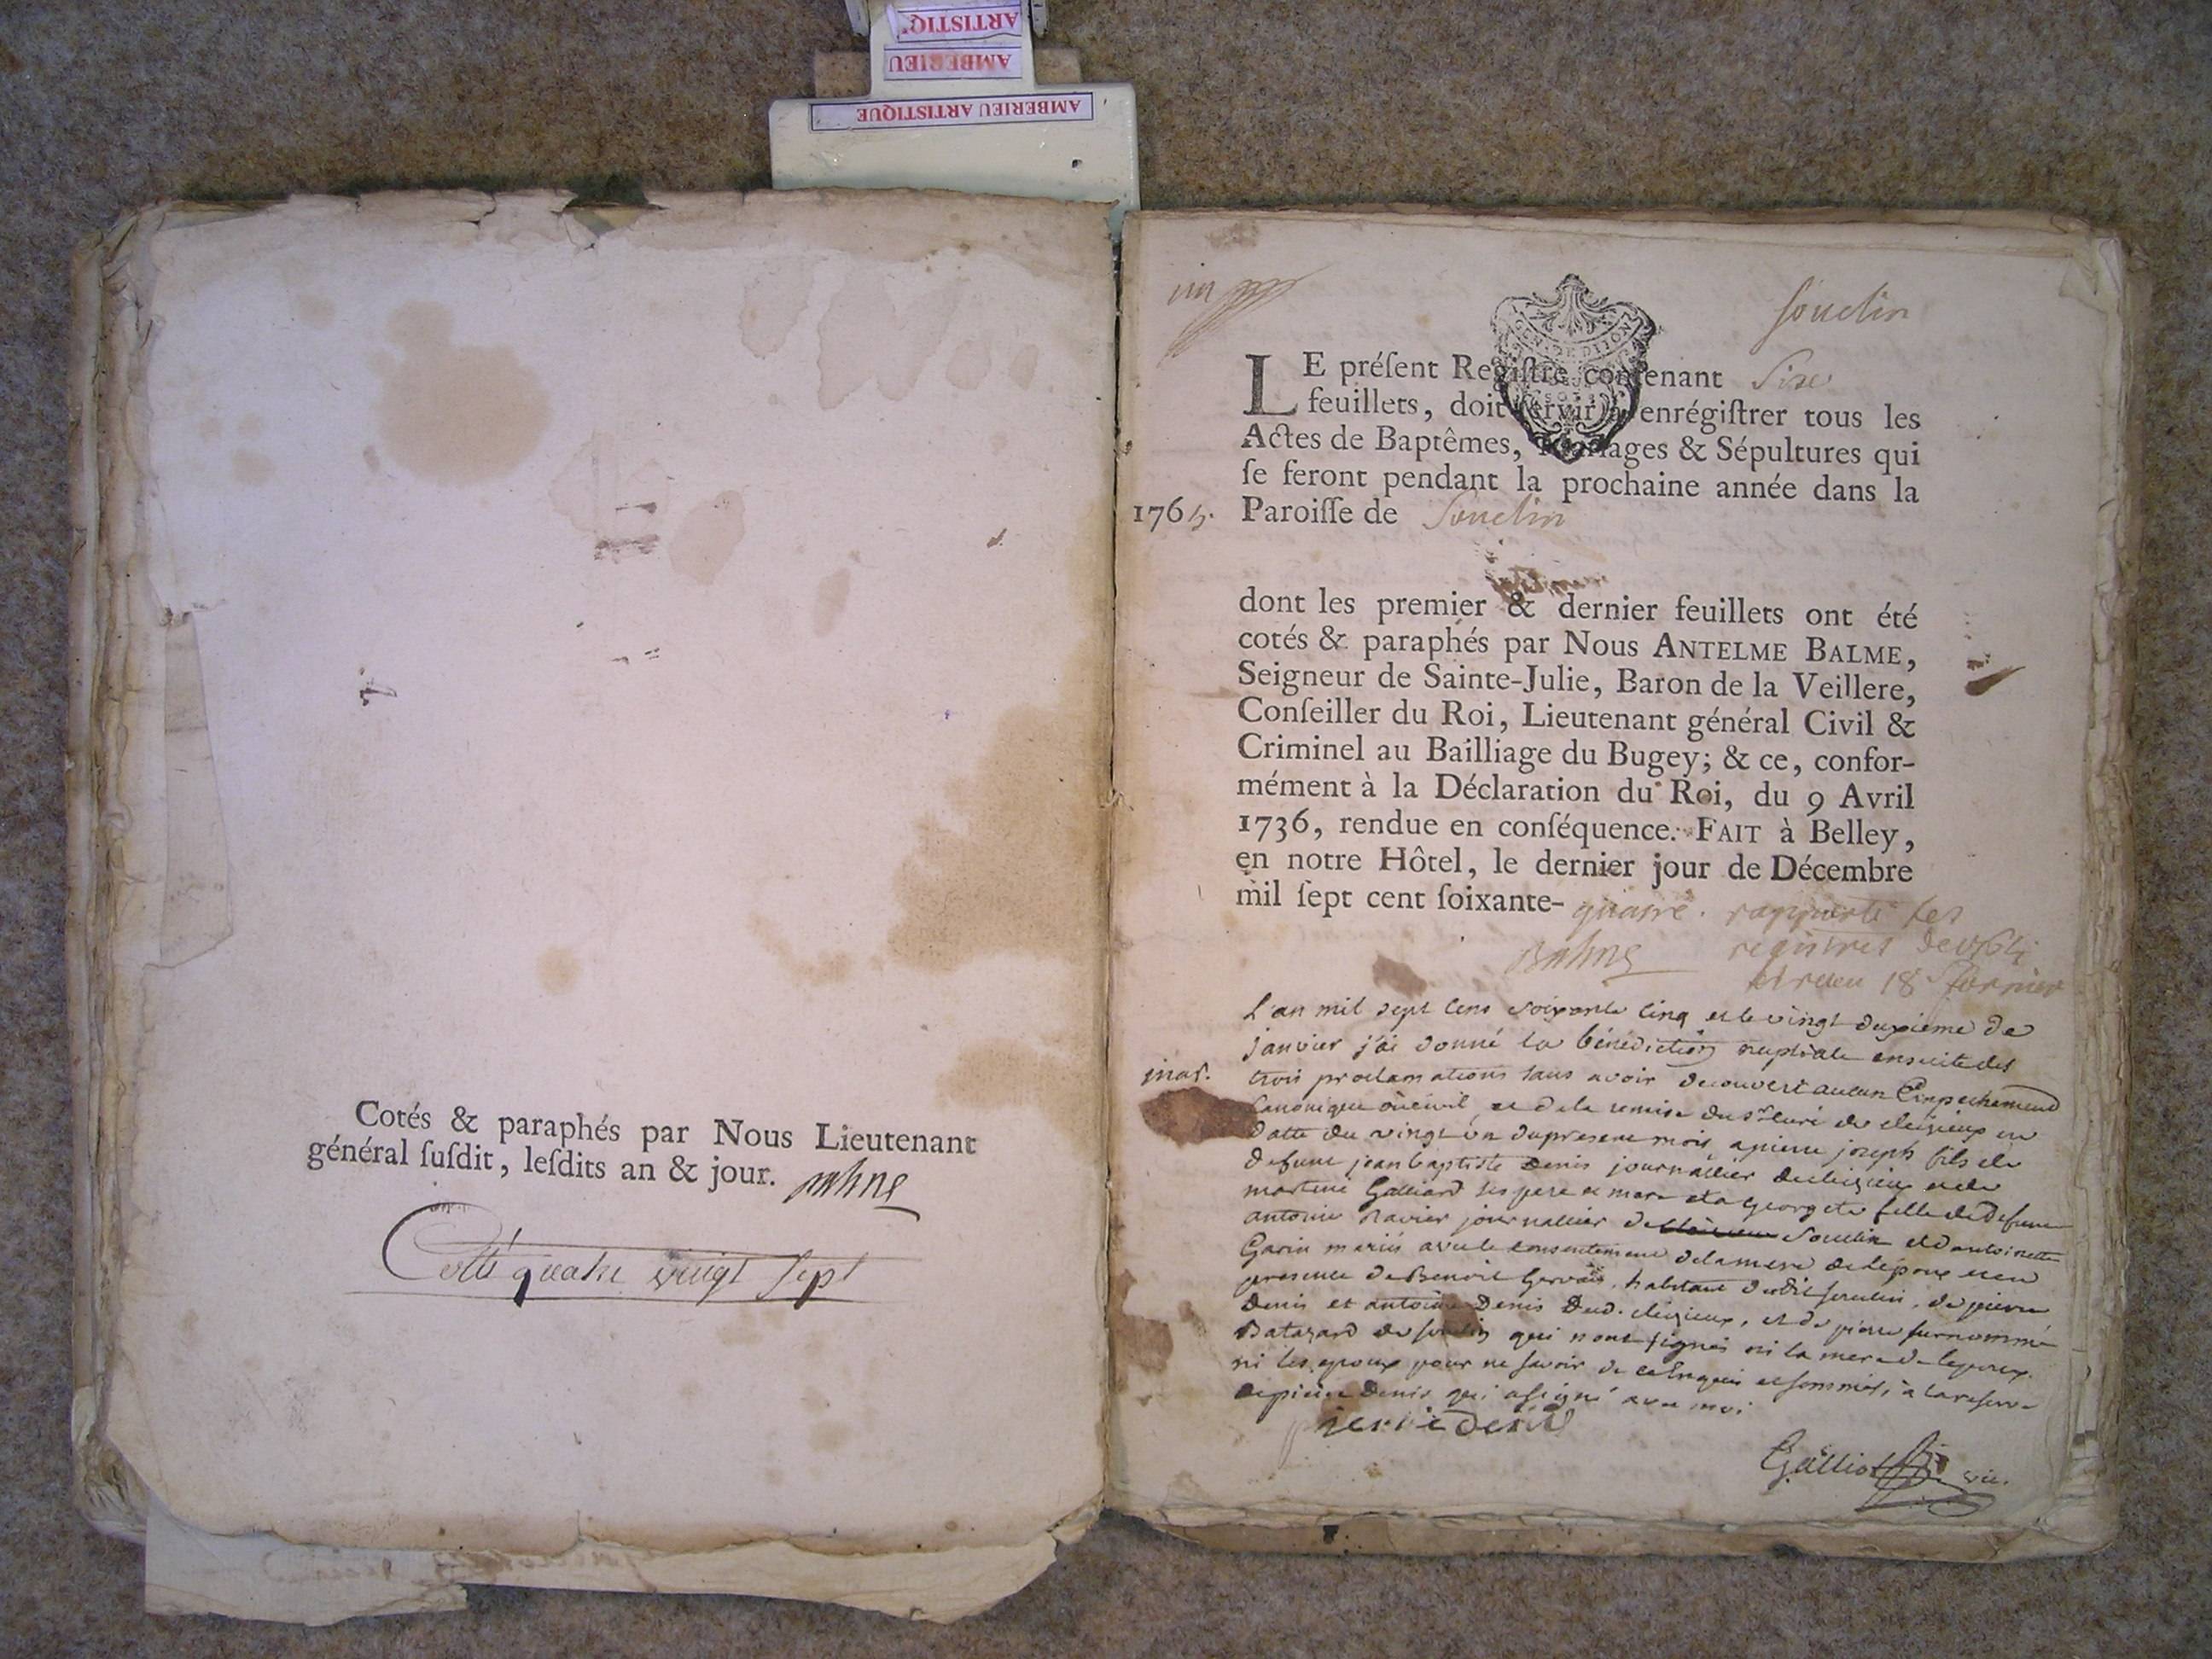 ARTISTIQ
AMBERIEU
AMBERIEU ARTISTIQUE
Cotés & paraphés par Nous Lieutenant
général ſuſdit, leſdits an & jour. Balme
Cotté quatre vingt sept
un
souclin
GEN. DE DIJON
LE préſent Regiſtre contenant Six
feuillets, doit ſervir à enrégiſtrer tous les
Actes de Baptêmes, Mariages & Sépultures qui
ſe feront pendant la prochaine année dans la
1765. Paroiſſe de Souclin
dont les premier & dernier feuillets ont été
cotés & paraphés par Nous ANTELME BALME,
Seigneur de Sainte-Julie, Baron de la Veillere,
Conſeiller du Roi, Lieutenant général Civil &
Criminel au Bailliage du Bugey; & ce, confor-
mément à la Déclaration du Roi, du 9 Avril
1736, rendue en conſéquence. FAIT à Belley,
en notre Hôtel, le dernier jour de Décembre
mil ſept cent ſoixante- quatre. rapporté les
Balme registres de 1764
et receu 18
L'an mil sept cens soixante cinq et le vingt deuxieme de
janvier j'ai donné la bénédiction nuptiale ensuite des
mar. trois proclamations sans avoir decouvert aucun Empechement
Canonique ou civil, et de la remise du sr curé de cleizieux en
datte du vingt un du present mois, a pierre joseph fils de
defunt jean baptiste Denis journallier de cleizieux et de
martine Galliard ses pere et mere et a georgete fille de Defunt
antoine Ravier journallier de Souclin et d'antoinette
Garin mariés avec le consentement de la mere de l'epoux et en
presence de Benoit Gervais, habitant dudit souclin, de pierre
Denis et antoine Denis dud. cleizieux, et de pierre surnommé
Batazard de souclin qui n'ont signés ni la mere de l'epoux
ni les epoux pour ne savoir de ce enquis et sommés, a la reserve
de pierre Denis qui a signé avec moi
pierre denis
Galliot vic.